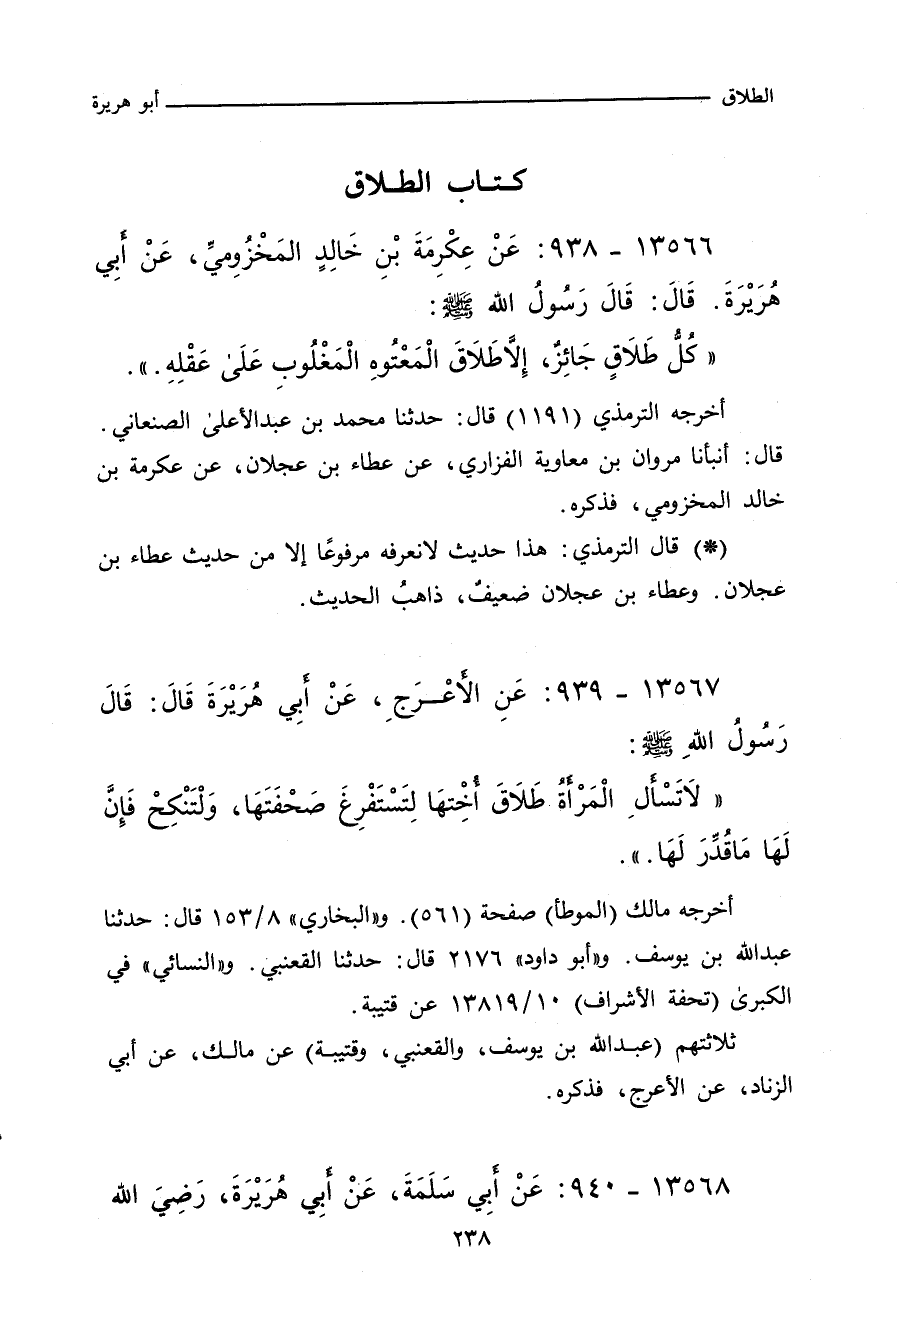 الطلاق ـــــــــــــــــ أبو هريرة
كـتـاب الطـلاق
١٣٥٦٦ - ٩٣٨: عَنْ عِكْرِمَةَ بْنِ خَالِدٍ المَخْزُومِيِّ، عَنْ أَبِي
هُرَيْرَةَ. قَالَ: قَالَ رَسُولُ الله ﷺ:
« كُلُّ طَلَاقٍ جَائِزٌ، إِلَّاطَلَاقَ الْمَعْتُوهِ الْمَغْلُوبِ عَلَىٰ عَقْلِهِ.».
أخرجه الترمذي (١١٩١) قال: حدثنا محمد بن عبدالأعلىٰ الصنعاني.
قال: أنبأنا مروان بن معاوية الفزاري، عن عطاء بن عجلان، عن عكرمة بن
خالد المخزومي، فذكره.
(*) قال الترمذي: هذا حديث لانعرفه مرفوعًا إلا من حديث عطاء بن
عجلان. وعطاء بن عجلان ضعيفٌ، ذاهبُ الحديث.
١٣٥٦٧ - ٩٣٩: عَنِ الْأَعْـرَجِ، عَنْ أَبِي هُرَيْرَةَ قَالَ: قَالَ
رَسُولُ اللهِ ﷺ:
« لَاتَسْأَلِ الْمَرْأَةُ طَلَاقَ أُخْتِهَا لِتَسْتَفْرِغَ صَحْفَتَهَا، وَلْتَنْكِحْ فَإِنَّ
لَهَا مَاقُدِّرَ لَهَا.».
أخرجه مالك (الموطأ) صفحة (٥٦١). و«البخاري» ١٥٣/٨ قال: حدثنا
عبدالله بن يوسف. و«أبو داود» ٢١٧٦ قال: حدثنا القعنبي. و«النسائي» في
الكبرىٰ (تحفة الأشراف) ١٣٨١٩/١٠ عن قتيبة.
ثلاثتهم (عبـدالله بن يوسف، والقعنبي، وقتيبـة) عن مالـك، عن أبي
الزناد، عن الأعرج، فذكره.
١٣٥٦٨ - ٩٤٠: عَنْ أَبِي سَلَمَةَ، عَنْ أَبِي هُرَيْرَةَ، رَضِيَ الله
٢٣٨